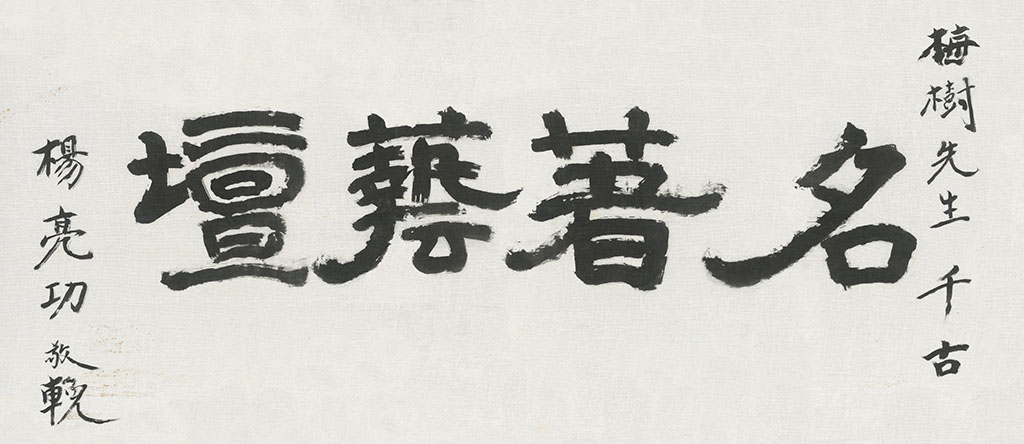 梅樹先生千古
名著藝壇
楊亮功敬輓